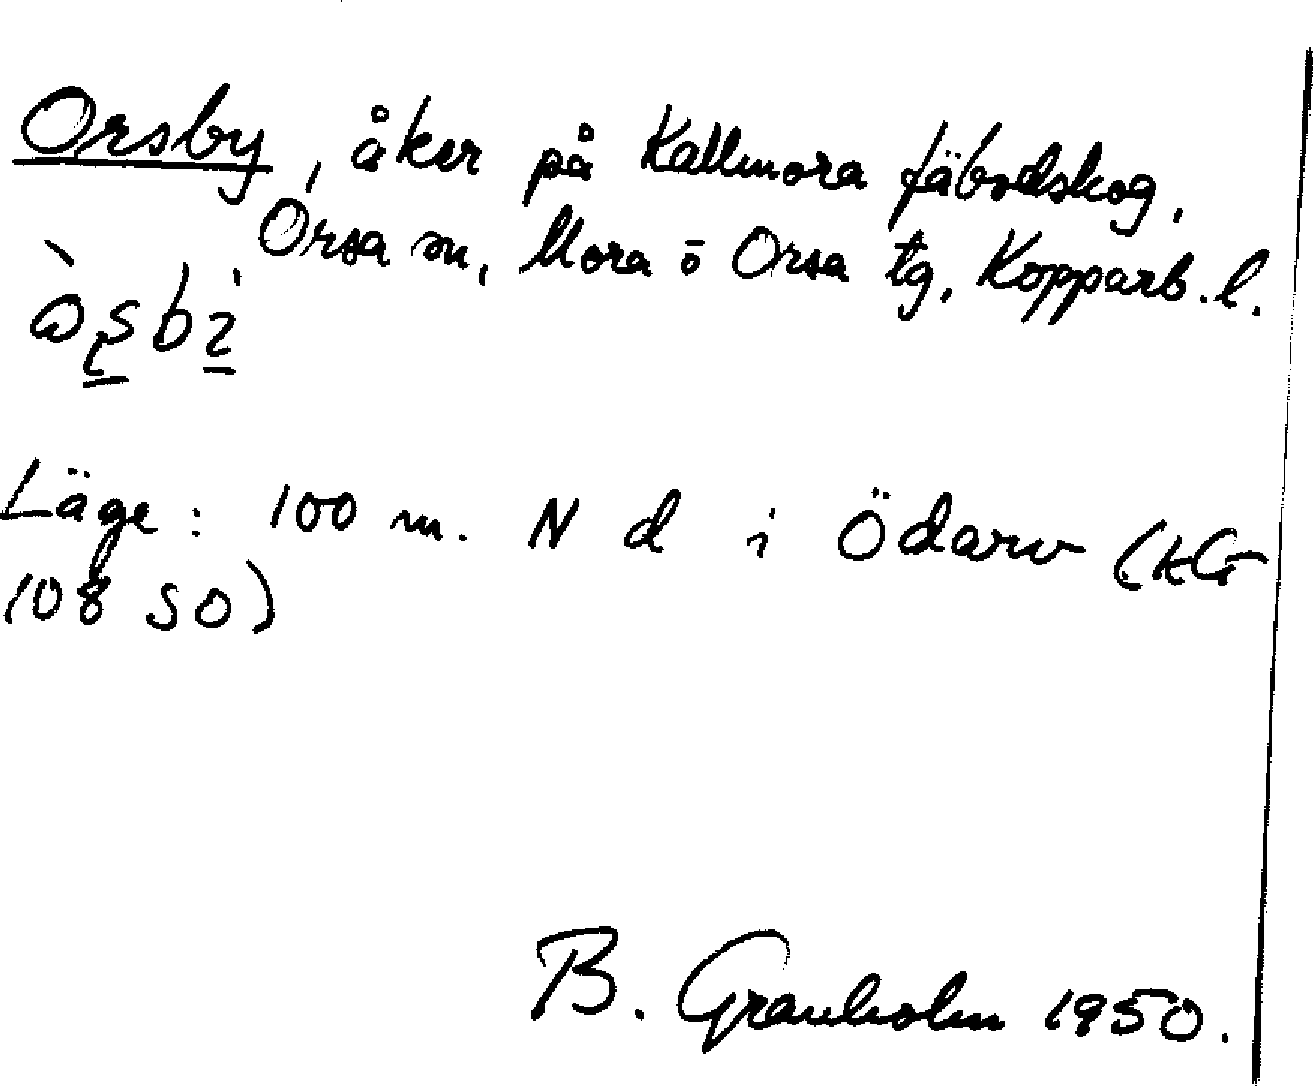 Orsby, åker på Kallmora fäbodskog,
Orsa sn, Mora o Orsa tg, Kopparb. l.
Läge: 100 m. N d i Ödarv (KG
108 SO)
B. Granholm 1950.